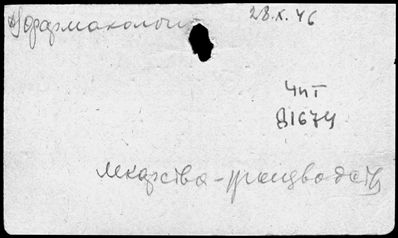 Фармакология
28.X.46
ЧпТ
В1674
лекарства - производств